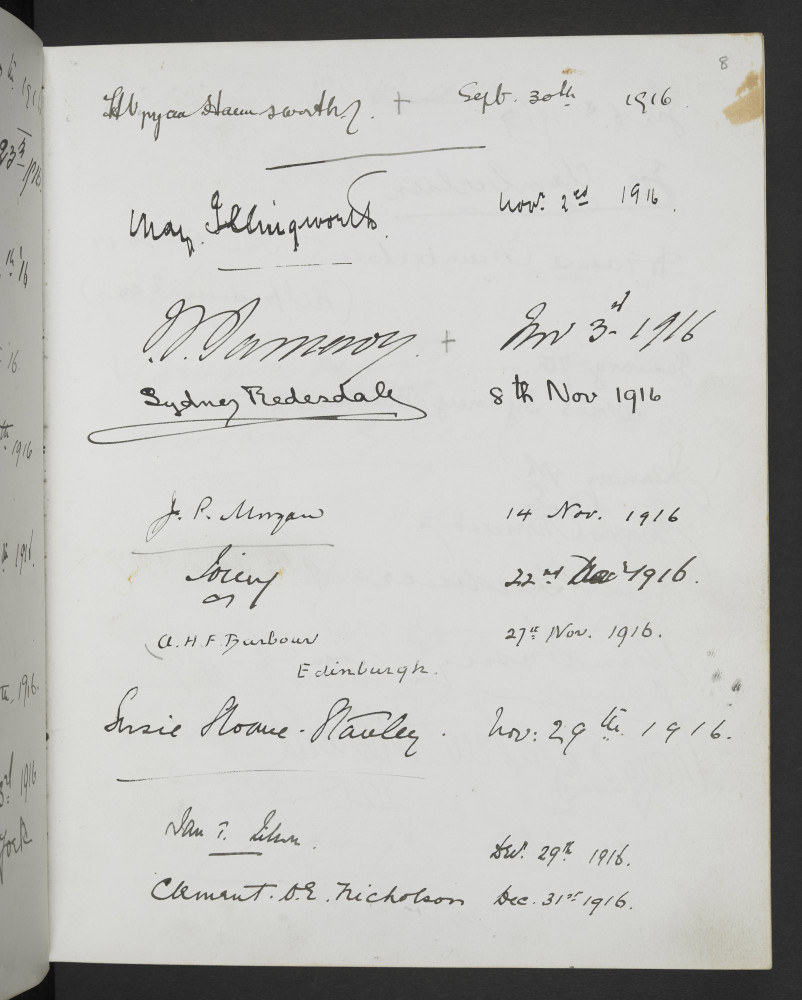 8
Harmsworth. + Sept. 30th 1916.
May Illingworth. Nov: 2nd 1916.
+ Nov 3rd 1916
Sydney Redesdale 8th Nov 1916
J. P. Morgan 14 Nov. 1916
22nd 1916.
A.H.F. Barbour 27th Nov. 1916.
Edinburgh.
Susie Sloane-Stanley. Nov: 29th. 1916.
Ian T. Dec. 29th 1916.
Clement. D.E. Nicholson Dec. 31st 1916.